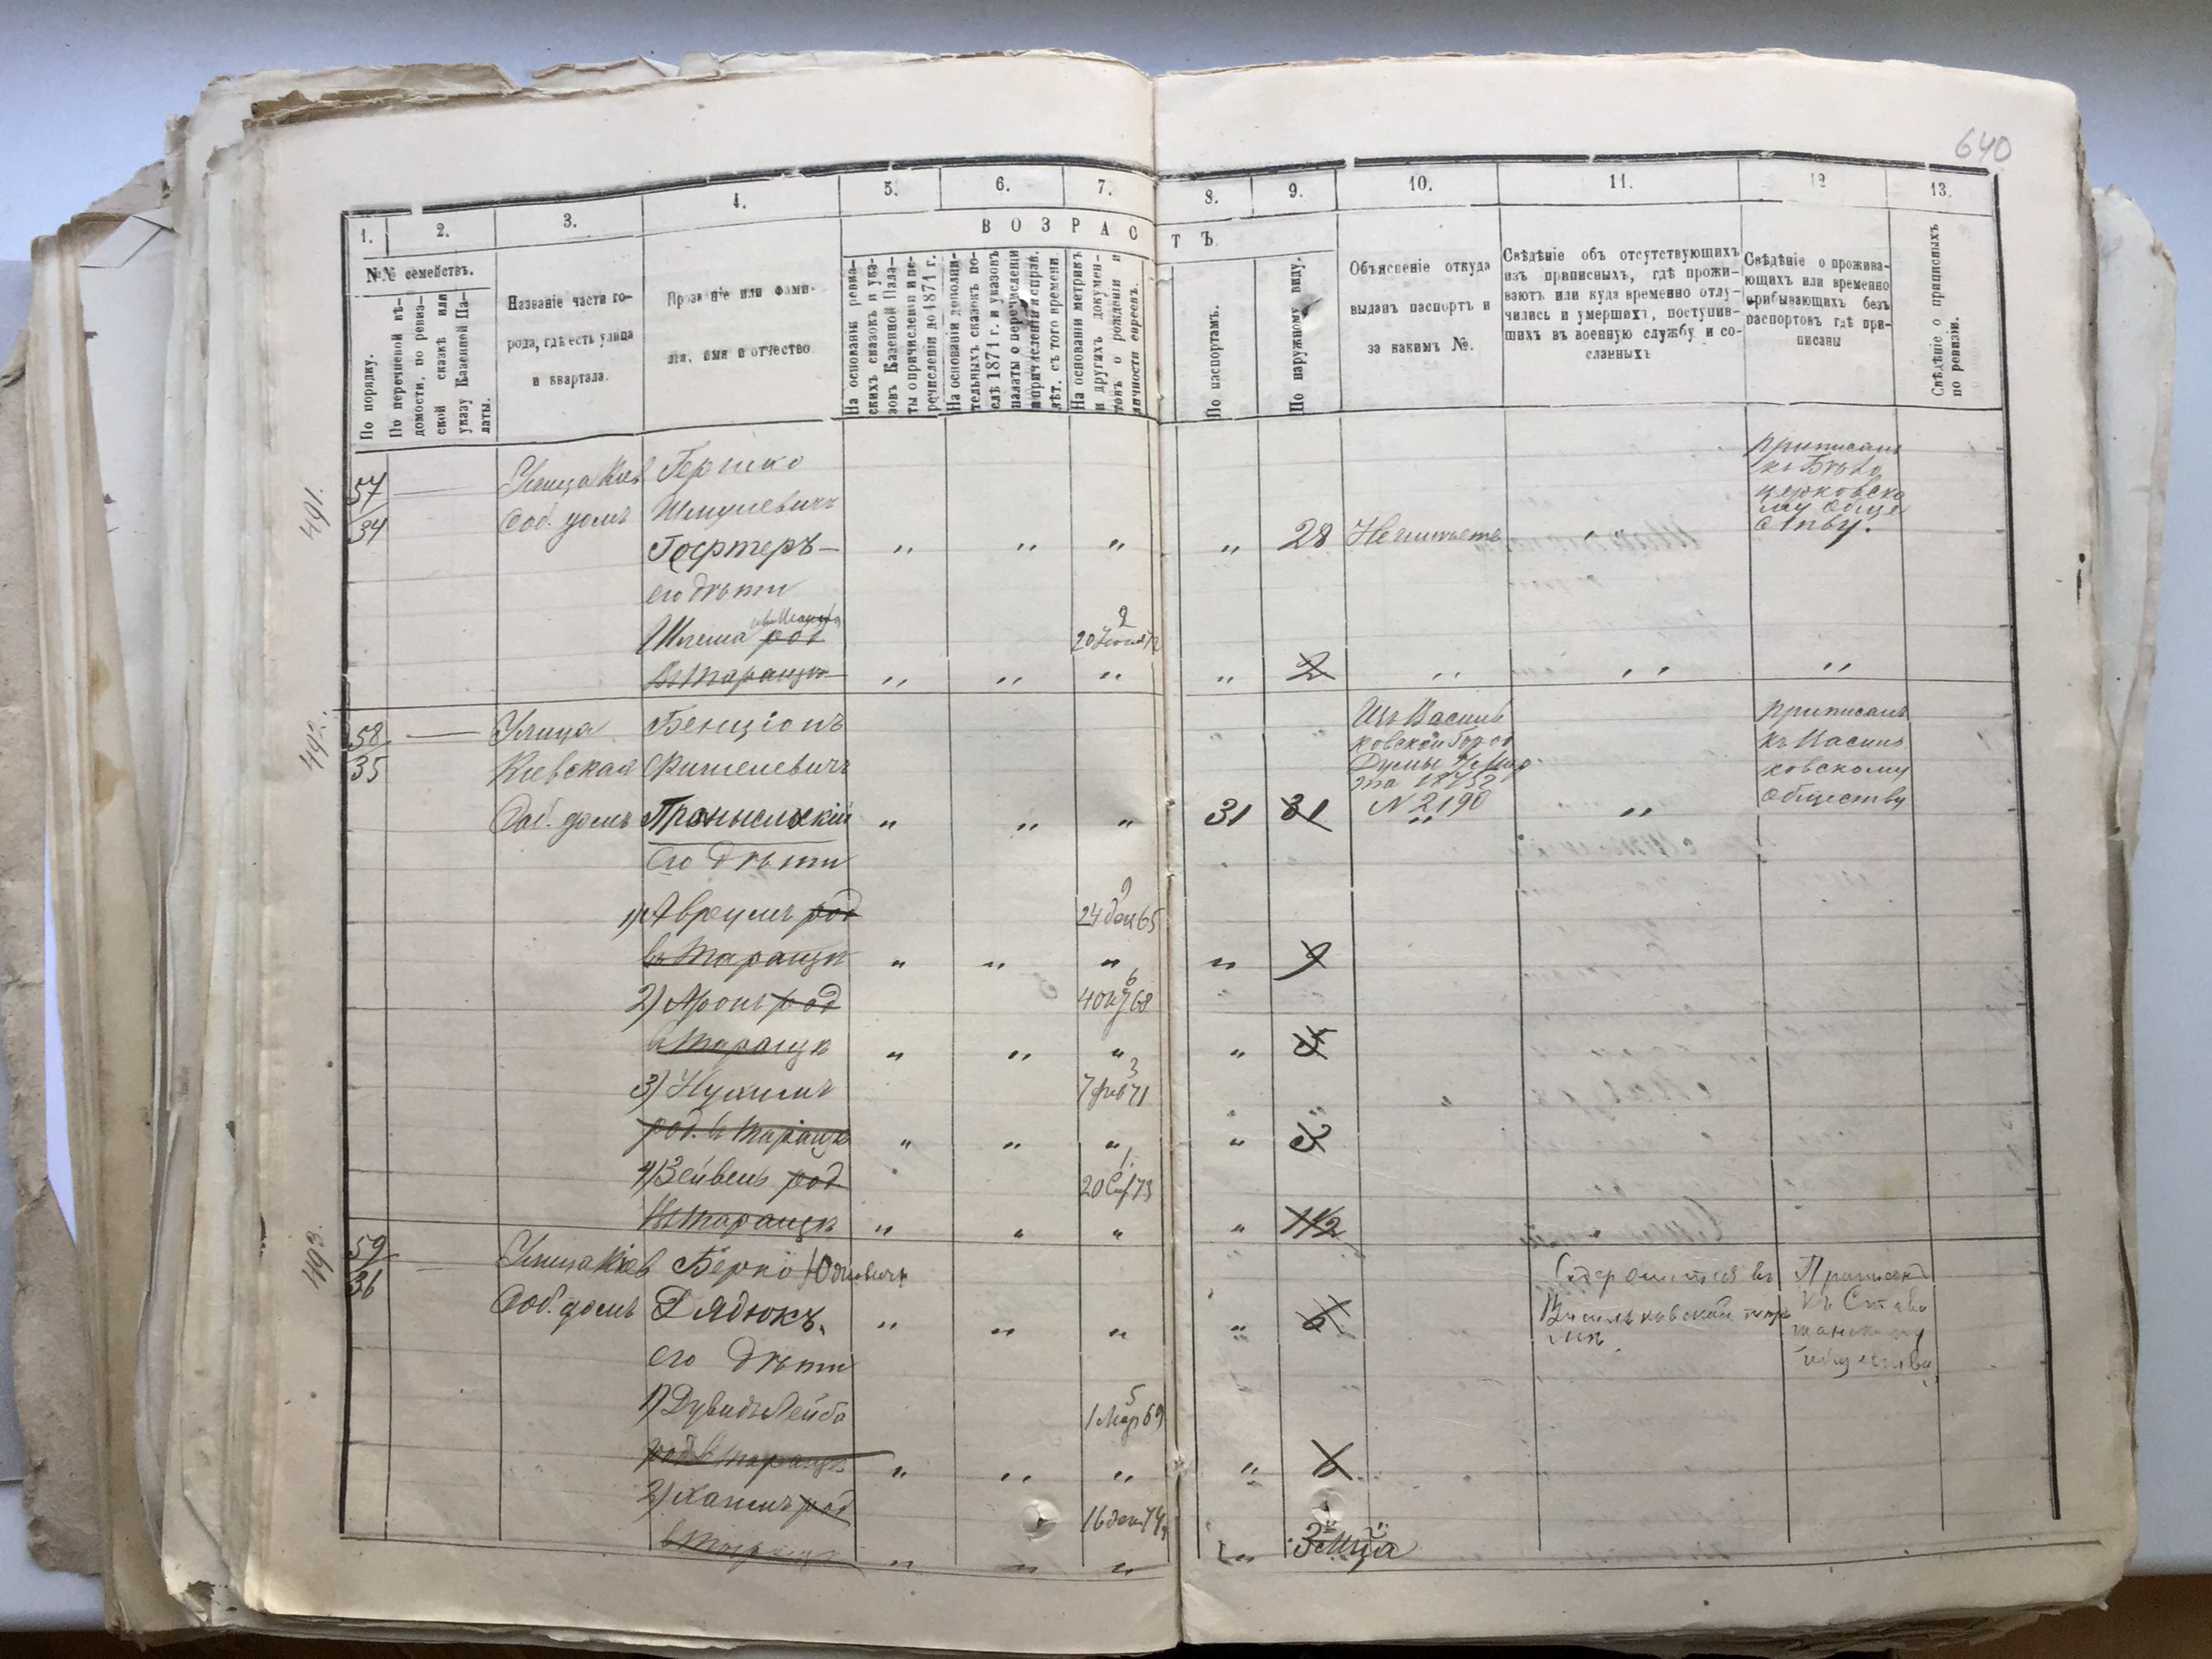 640
1.
2.
3.
4.
5.
6.
7.
8.
9.
10.
11.
12
13.
В О З Р А С Т Ъ.
№№ семействъ.
По порядку.
По перечневой вѣ-
домости, по ревиз-
ской сказкѣ или
указу Казенной Па-
латы.
Названіе части го-
рода, гдѣ есть улица
и квартала.
Прозваніе или фами-
лія, имя и отчество
На основаніи ревиз-
скихъ сказокъ и ука-
зовъ Казенной Пала-
ты о причисленіи и пе-
речисленіи до 1871 г.
На основаніи дополни-
тельныхъ сказокъ по-
слѣ 1871 г. и указовъ
палаты о перечисленіи
и причисленіи и справ.
лѣт. съ того времени.
На основаніи метрикъ
и другихъ докумен-
товъ о рожденіи и
личности евреевъ.
По паспортамъ.
По наружному виду.
Объясненіе откуда
выданъ паспортъ и
за какимъ №.
Свѣдѣніе объ отсутствующихъ
изъ приписныхъ, гдѣ прожи-
ваютъ или куда временно отлу-
чились и умершихъ, поступив-
шихъ въ военную службу и со-
сланныхъ
Свѣдѣніе о прожива-
ющихъ или временно
прибывающихъ безъ
паспортовъ гдѣ при-
писаны
Свѣдѣніе о приписныхъ
по ревизіи.
491.
57
34
Улица Кіев
Соб. домъ
Гершко
Шмулевичъ
Гофтеръ
28
Неимѣетъ
Приписанъ
къ Бѣло
церковско
му Обще
ству.
его дѣти
Шлема род
2
20 Іюня 72
въ Таращѣ
2
492.
58
35
Улица
Кіевская
Соб. домъ
Бенціонъ
Фишелевичъ
31
31
Изъ Василь
ковской Город
Думы
№ 2190
Приписанъ
къ Василь
ковскому
Обществу
его дѣти
1) Аврумъ род
9
24 дек 65
въ Таращѣ
9
2) Аронъ род
6
4 Ок 68
въ Таращѣ
5
3) Нухимъ
3
7 фев 71
род. въ Таращѣ
3
4) Зейвель род
1
20 73
въ Таращѣ
1½
493.
59
36
Улица Кіев
Соб. домъ
Берко Юдковичъ
Гладюкъ.
Содержится въ
Васильковской тюрь
мѣ.
Приписанъ
къ Стави
щанскому
обществу
его дѣти
1) Дувидъ Лейба
5
1 Мар 69
род. въ Таращѣ
6
2) Хаимъ род
16 дек 74
въ Таращѣ
3 мца